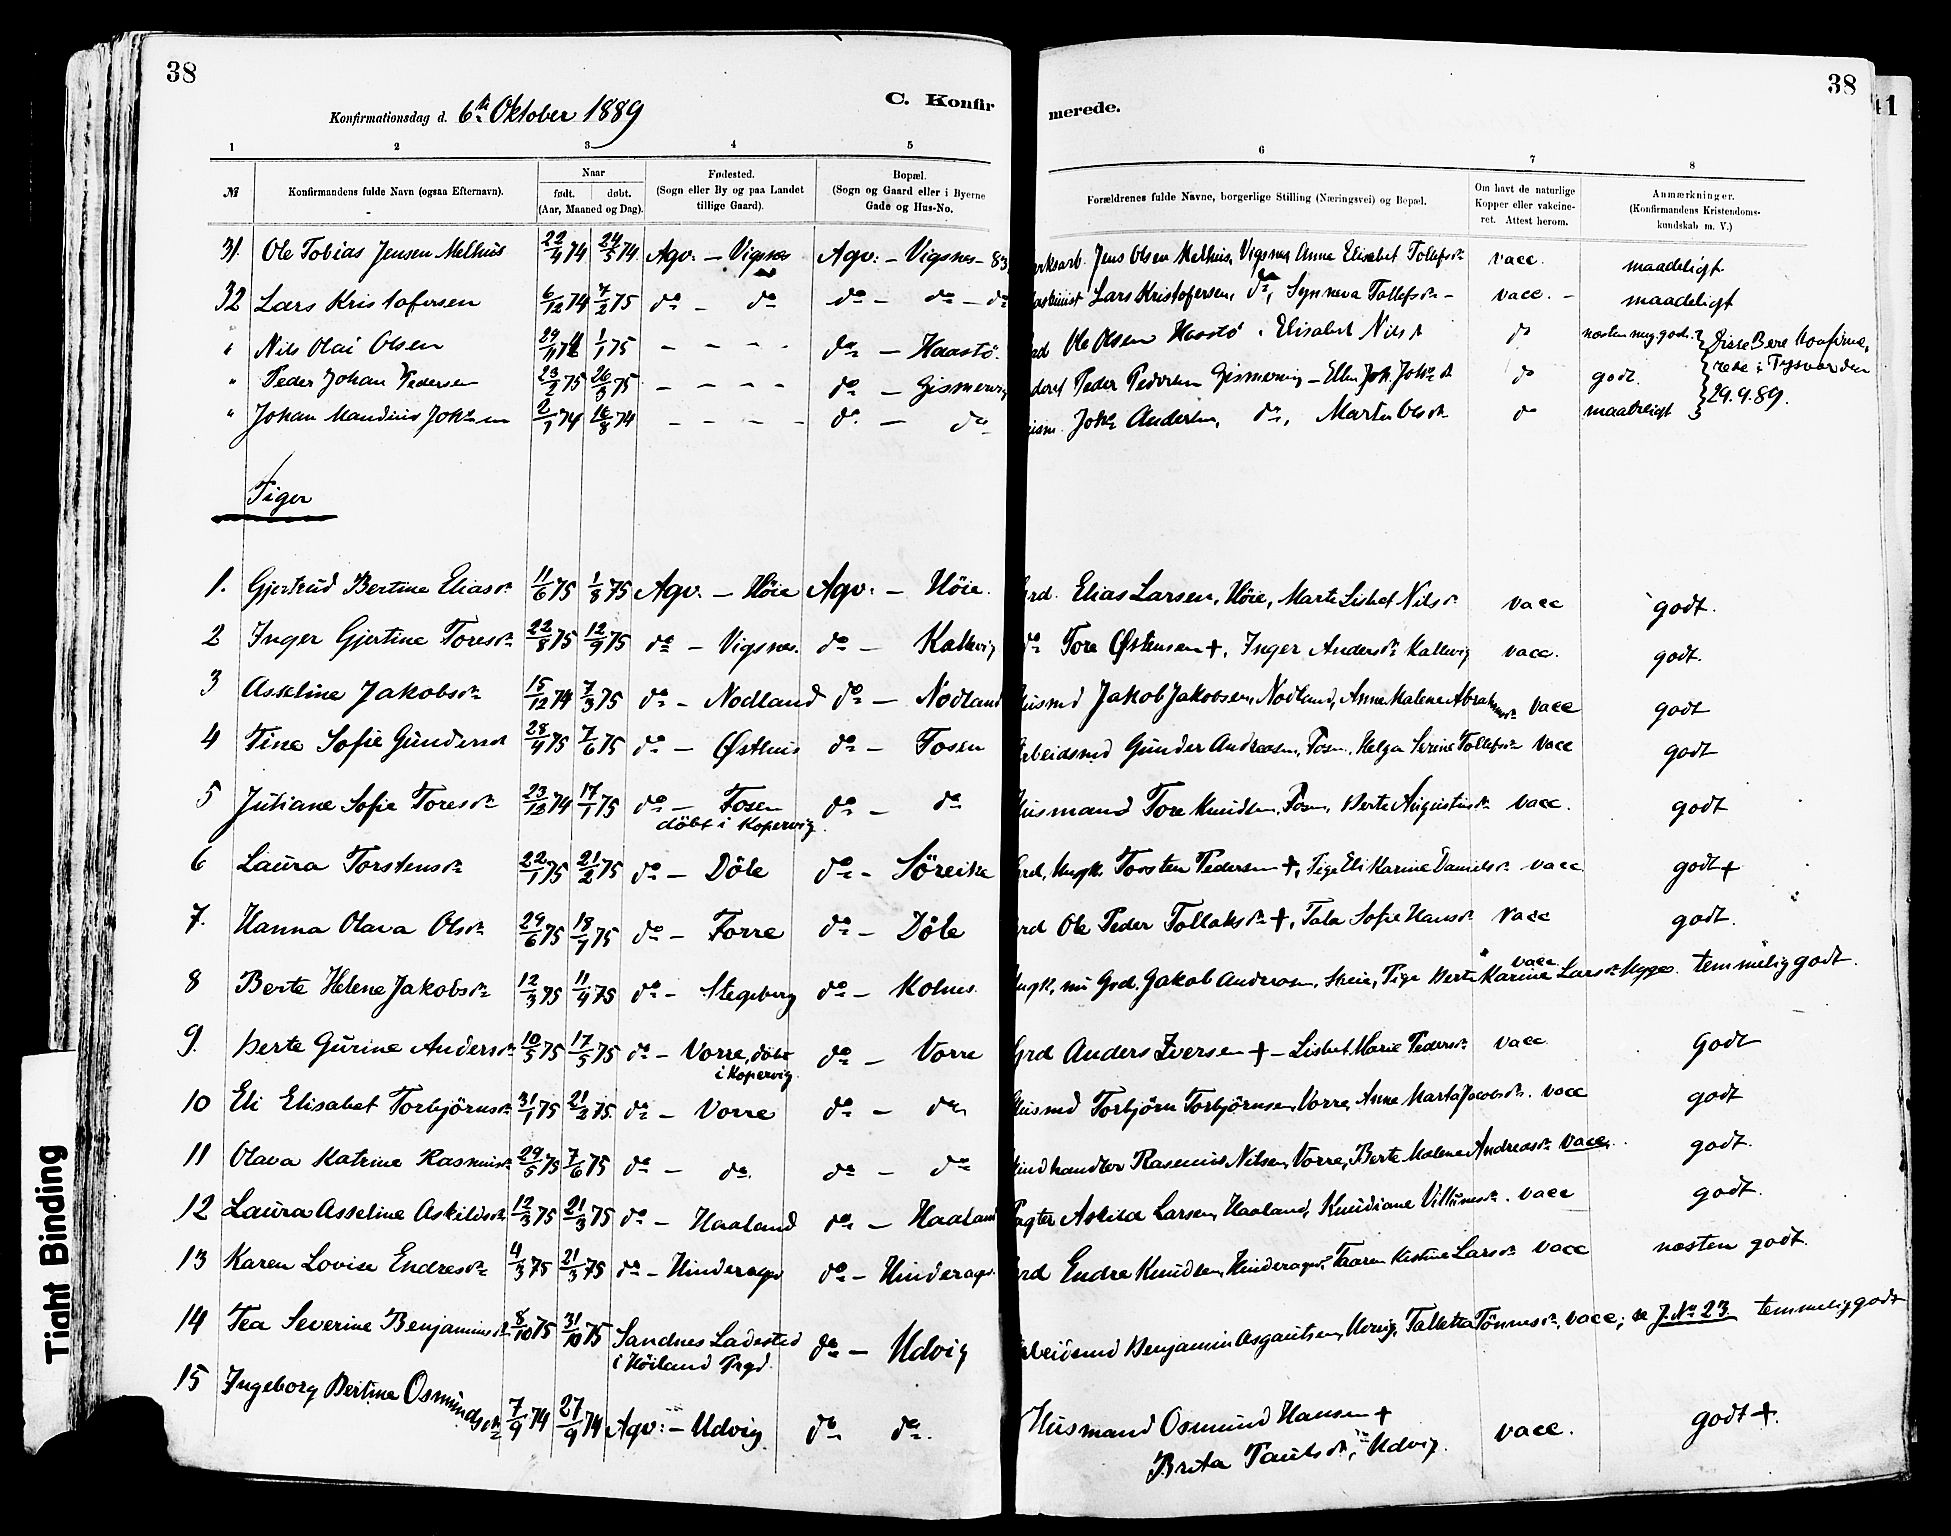 38
38
41
Konfirmationsdag d. 6te Oktober 1889
C. Konfir
merede.
1 2 3 4 5 6 7 8
№ Konfirmandens fulde Navn (ogsaa Efternavn). Naar født. døbt. (Aar, Maaned og Dag). Fødested. (Sogn eller By og paa Landet tillige Gaard). Bopæl. (Sogn og Gaard eller i Byerne Gade og Hus-No. Forældrenes fulde Navne, borgerlige Stilling (Næringsvei) og Bopæl. Om havt de naturlige Kopper eller vakcineret. Attest herom. Anmærkninger. (Konfirmandens Kristendomskundskab m. V.)
31. Ole Tobias Jensen Melhus 22/4 74 24/5 74 Agv. – Vigsnes Agv: – Vigsnes – 83 Jens Olsen Melhus, Vigsnes Anne Elisabet Tollefsdr vacc. maadeligt
32 Lars Kristofersen 6/12 74 7/2 75 do – do do – do – do Lars Kristofersen, do, Synneva Tollefsdr – vacc. – maadeligt
" Nils Olai Olsen 29/11 74 1/1 75 – – – – do – Haastø. Ole Olsen Haastø . Elisabet Nilsd do næsten meg. godt.
" Peder Johan Pedersen 23/2 75 26/3 75 – – – – do – Peder Pedersen do godt.
" Johan Mandius 2/7 74 16/8 74 – – – – do – do Andersen, do, do maadeligt
Disse Bere konfirme,
rede i Tysvær den
29.9.89.
Piger
1. Gjertrud Bertine Eliasdr 11/6 75 1/8 75 Agv. – Høie Agv: – Høie. Grd. Elias Larsen, Høie, Marte Lisbet Nilsdr vacc godt.
2 Inger Gjertine Toresdr 22/8 75 12/9 75 do – Vigsnes. do – Kallevig do Tore Østensen +, Inger Andersdr Kallevig vacc. godt.
3 Asseline Jakobsdr 15/12 74 7/3 75 do – Nodland do – Nodland Husmd Jakob Jakobsen, Nodland, Anne Malene Abrahamsdr vacc godt
4 Tine Sofie Gundersdr 28/4 75 7/6 75 do – Østhus do – Fosen Arbeidsmd Gunder Andreasen, Fosen, Helga Serine Tollefsdr vacc godt
5 Juliane Sofie Toresdr 23/12 74 17/1 75 do – Fosen døbt i Kopervig. do – do Husmand Tore Knudsen, Fosen, Berte Augustinsdr vacc. godt
6 Laura Torstensdr 22/1 75 21/2 75 do – Døle do – Søreike Grd, Ungk. Torsten Pedersen +, Pige Eli Karine Danielsdr vacc godt +
7. Hanna Olava Olsdr 29/6 75 18/7 75 do – Førre do – Døle Grd Ole Peder Tollaksdr +, Tala Sofie Hansdr vacc godt.
8 Berte Helene Jakobsdr 12/3 75 11/4 75 do – Stegeberg do – Kolnes. Ungk, nu Grd. Jakob Andersen, Pige Berte Karine Larsdr vacc temmelig godt.
9. Berte Gurine Andersdr 10/5 75 17/5 75 do – Vorre, døbt i Kopervig do – Vorre Grd Anders Iversen + – Lisbet Marie Pedersdr vacc godt
10 Eli Elisabet Torbjørnsdr 31/1 75 21/2 75 do – Vorre do – do Husmd Torbjørn Torbjørnsen, Vorre, Anne Marta Jacobsdr. vacc godt
11 Olava Katrine Rasmusdr 29/5 75 7/6 75 do – do. do – do handler Rasmus Nilsen, Vorre, Berte Malene Andreasdr vacc. godt.
12 Laura Asseline Askildsdr 12/3 75 21/3 75 do – Haaland do – Haaland Pagter Askild Larsen, Haaland, Knudiane Villumsdr. vacc godt.
13 Karen Lovise Endresdr 4/3 75 21/3 75 do – Hinderager do – Hinderager. Grd Endre Knudsen, Hinderager, Larsdr vacc næsten godt.
14 Tea Severine Benjaminsdr 8/10 75 31/10 75 Sandnes Ladested i Høiland Prgd. do – Udvig Arbeidsmd Benjamin Asgautsen, Udvig, Talletta Tønnesdr, vacc; se J. No 23. temmelig godt
15 Ingeborg Bertine Osmundsdr 7/9 74 27/9 74 Agv: – Udvig. do do. Husmand Osmund Hansen + Brita Paulsdr, Udvig. vacc. godt +.
Tight Binding